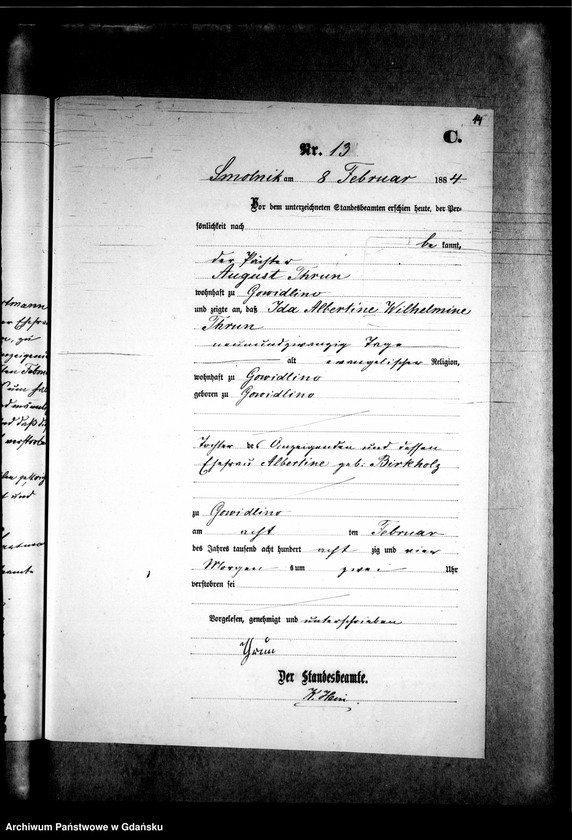 14
C.
Nr. 13
Smolnik am 8 Februar 1884
Vor dem unterzeichneten Standesbeamten erschien heute, der Per-
sönlichkeit nach
be kannt,
der Pächter
August Thrun
wohnhaft zu Gowidlino
und zeigte an, daß Ida Albertine Wilhelmine
Thrun
neunundzwanzig Tage
alt evangelischer Religion,
wohnhaft zu Gowidlino
geboren zu Gowidlino
Tochter des Anzeigenden und dessen
Ehefrau Albertine geb: Birkholz
zu Gowidlino
am acht ten Februar
des Jahres tausend acht hundert acht zig und vier
Morgen s um zwei Uhr
verstorben sei
Vorgelesen, genehmigt und unterschrieben
Thrun
Der Standesbeamte.
Hein
Archiwum Państwowe w Gdańsku